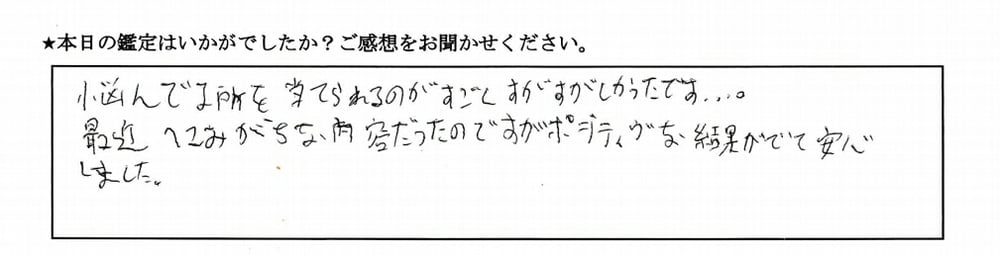 ★本日の鑑定はいかがでしたか？ご感想をお聞かせください。
悩んでる所を 当てられるのがすごく すがすがしかったです....。
最近 へこみがちな内容だったのですがポジティヴな結果がでて安心
しました。